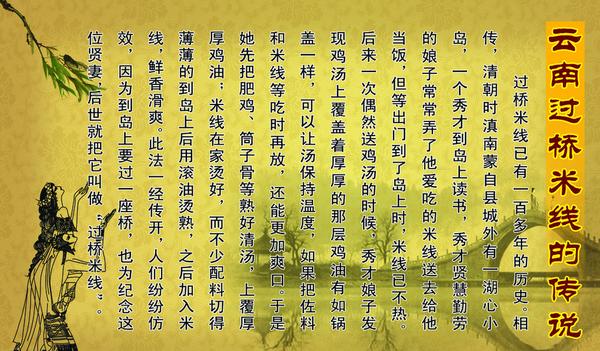 云南过桥米线的传说
过桥米线已有一百多年的历史。相
传，清朝时滇南蒙自县城外有一湖心小
岛，一个秀才到岛上读书，秀才贤慧勤劳
的娘子常常弄了他爱吃的米线送去给他
当饭，但等出门到了岛上时，米线已不热。
后来一次偶然送鸡汤的时候，秀才娘子发
现鸡汤上覆盖着厚厚的那层鸡油有如锅
盖一样，可以让汤保持温度，如果把佐料
和米线等吃时再放，还能更加爽口。于是
她先把肥鸡、筒子骨等熟好清汤，上覆厚
厚鸡油；米线在家烫好，而不少配料切得
薄薄的到岛上后用滚油烫熟，之后加入米
线，鲜香滑爽。此法一经传开，人们纷纷仿
效，因为到岛上要过一座桥，也为纪念这
位贤妻，后世就把它叫做“过桥米线”。